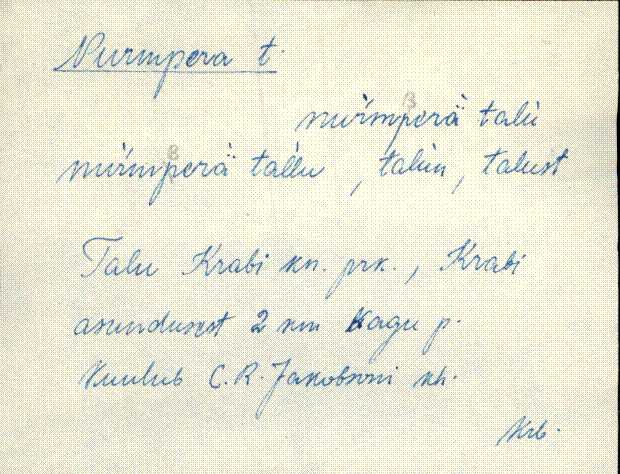 Nurmpera t.
nuŕmperä talù
nuŕmperä tallu, talun, talust
Talu Krabi kn. prk., Krabi
asundusest 2 km kagu p.
Kuulub C. R. Jakobsoni kh.
Krb.